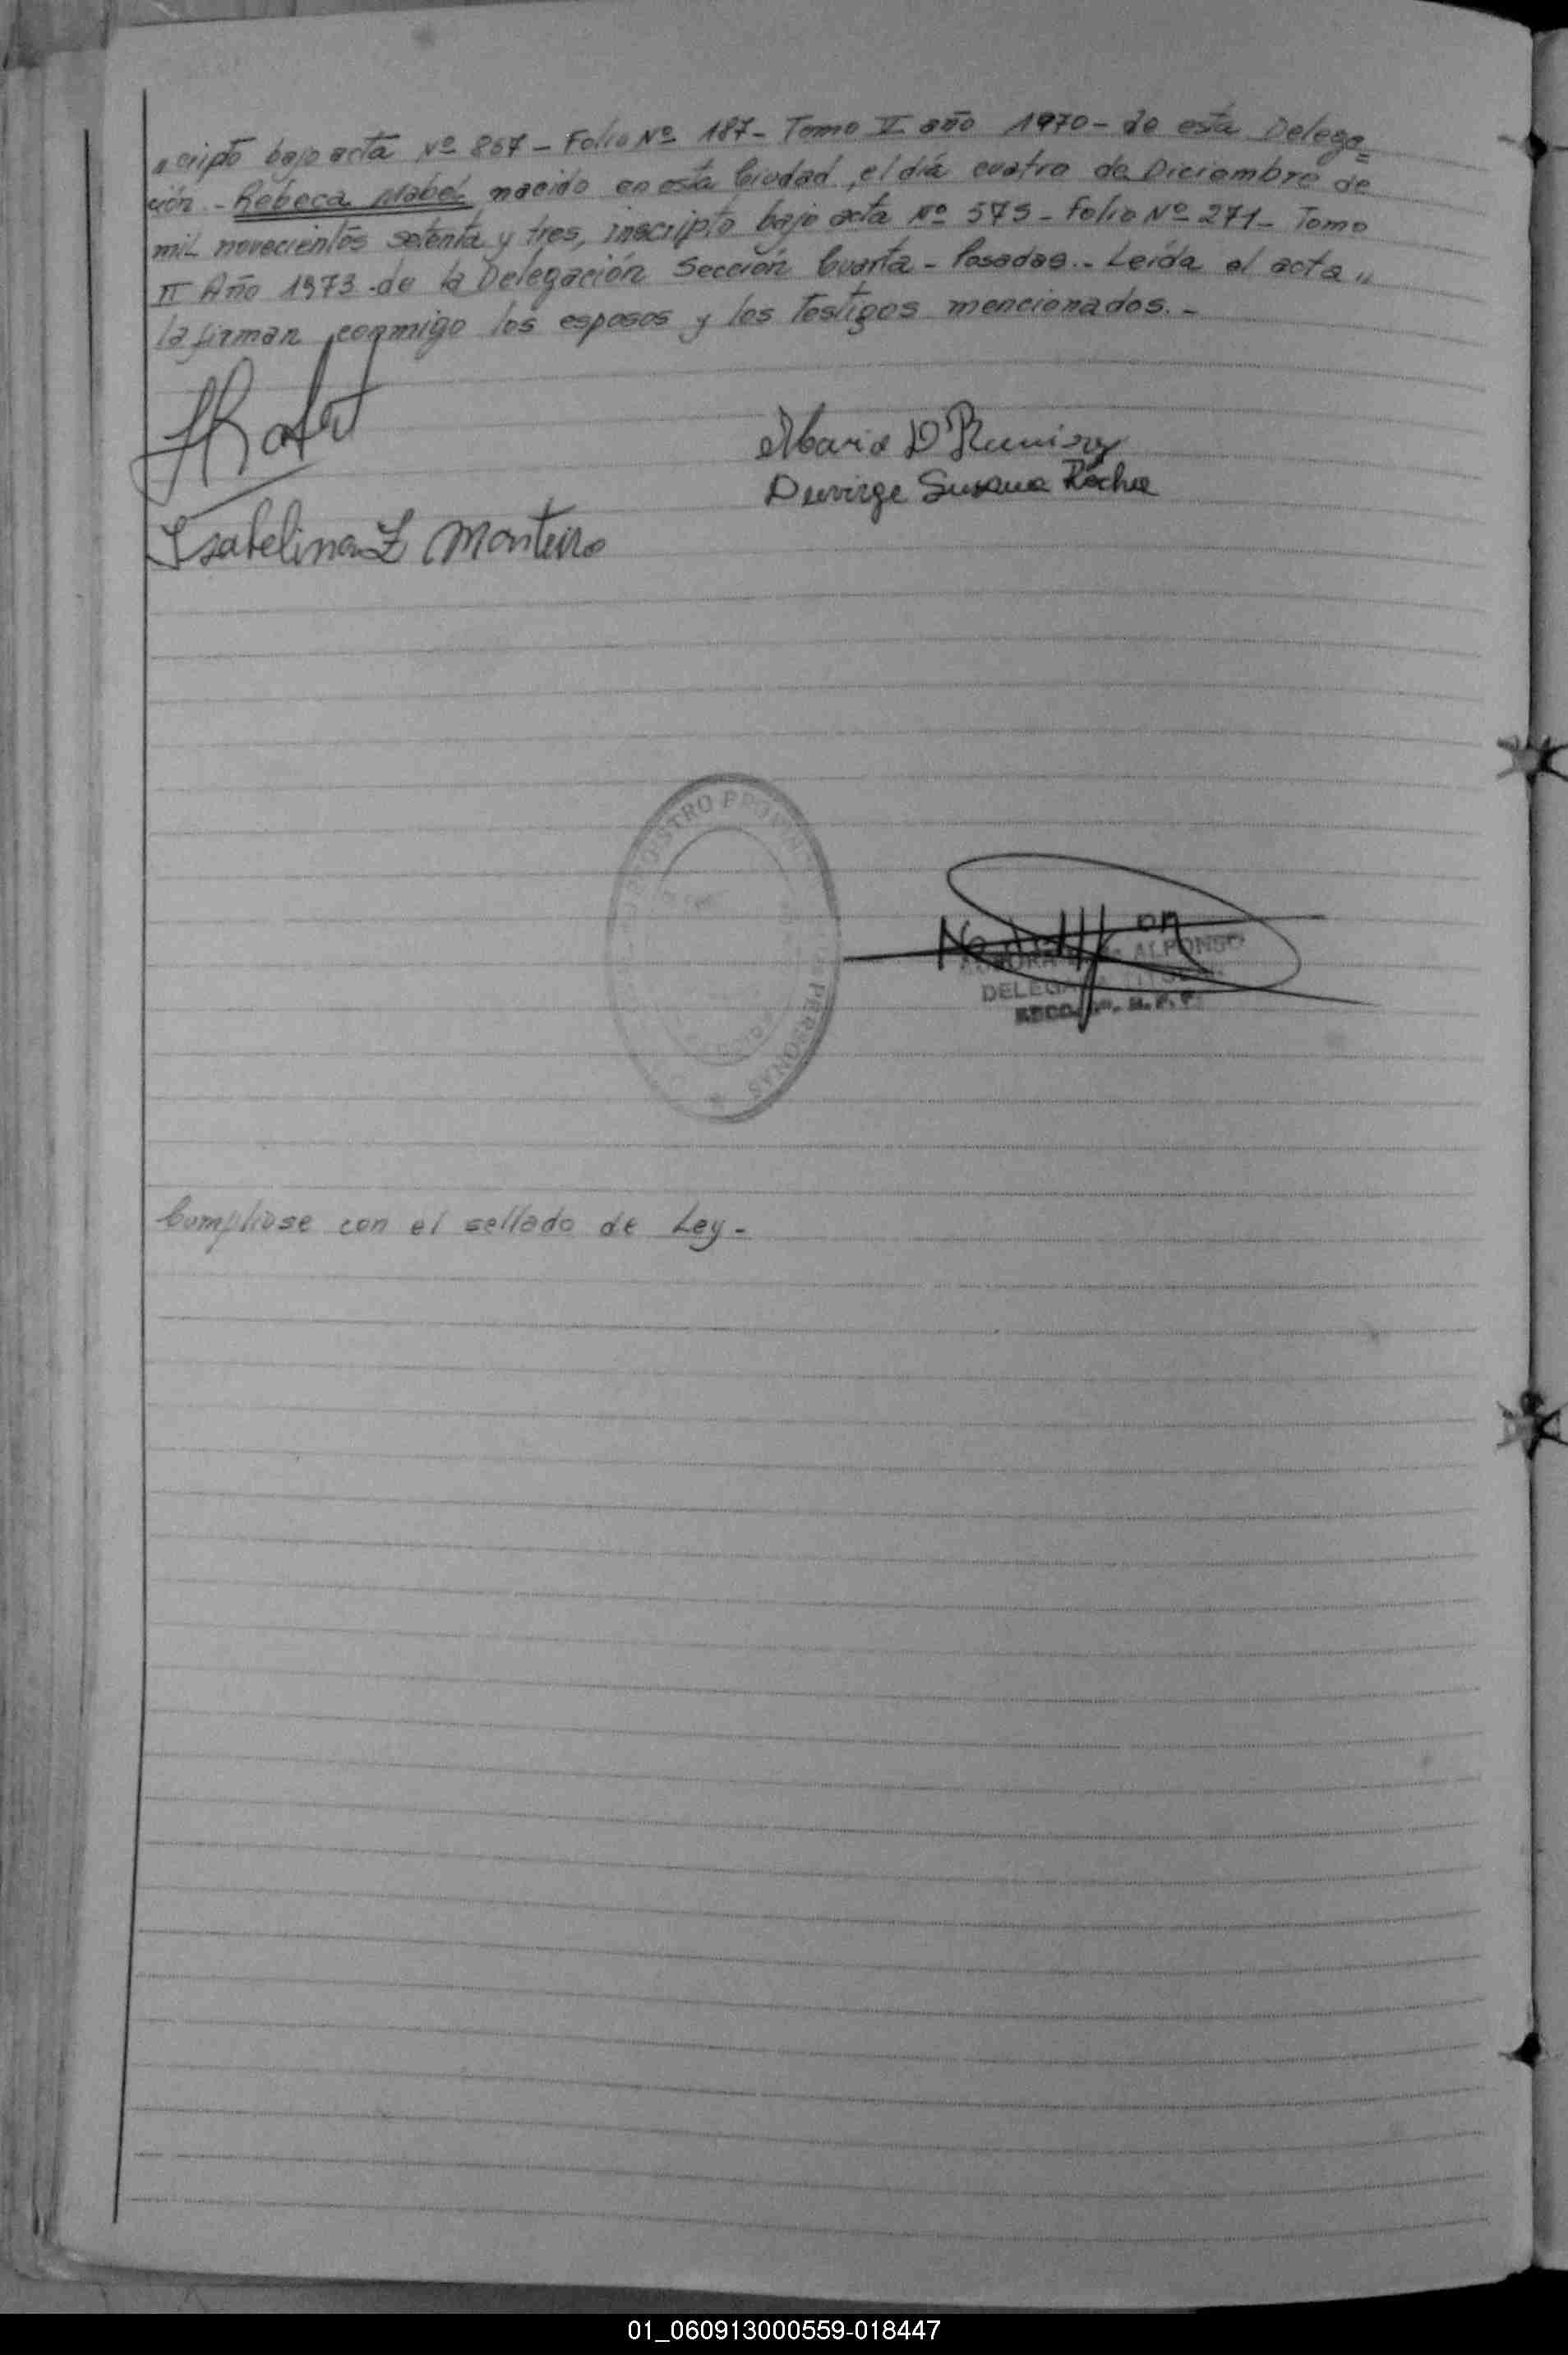 „cripto bajo acta Nº 857 - Folio Nº 187 - Tomo II año 1970 - de esta Delega=
ción - Rebeca Mabel nacido en esta Ciudad, el día cuatro de Diciembre de
mil novecientos setenta y tres, inscripto bajo acta Nº 575 - Folio Nº 271 - Tomo
II Año 1973 - de la Delegación Sección Cuarta - Posadas.- Leída el acta „
la firman conmigo los esposos y los testigos mencionados.-
Maria D Ramirez
Duvirge Susana Rocha
Isabelina Z Monteiro
REGISTRO PROVINCIAL
PERSONAS
ALFONSO
Cumpliose con el sellado de Ley-
01_060913000559-018447